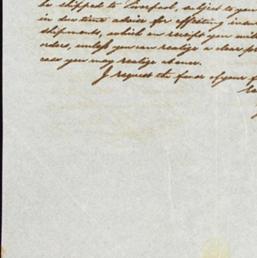 be shipped to Liverpool, subject to your
in due time advice for effecting insur
shipments, which on receipt you will
orders, unless you can realize a clear pro
case you may realize at once.
I request the favor of your